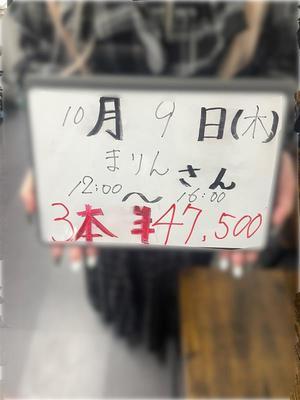 10月9日(木)
まりんさん
12:00〜16:00
3本 ¥47,500